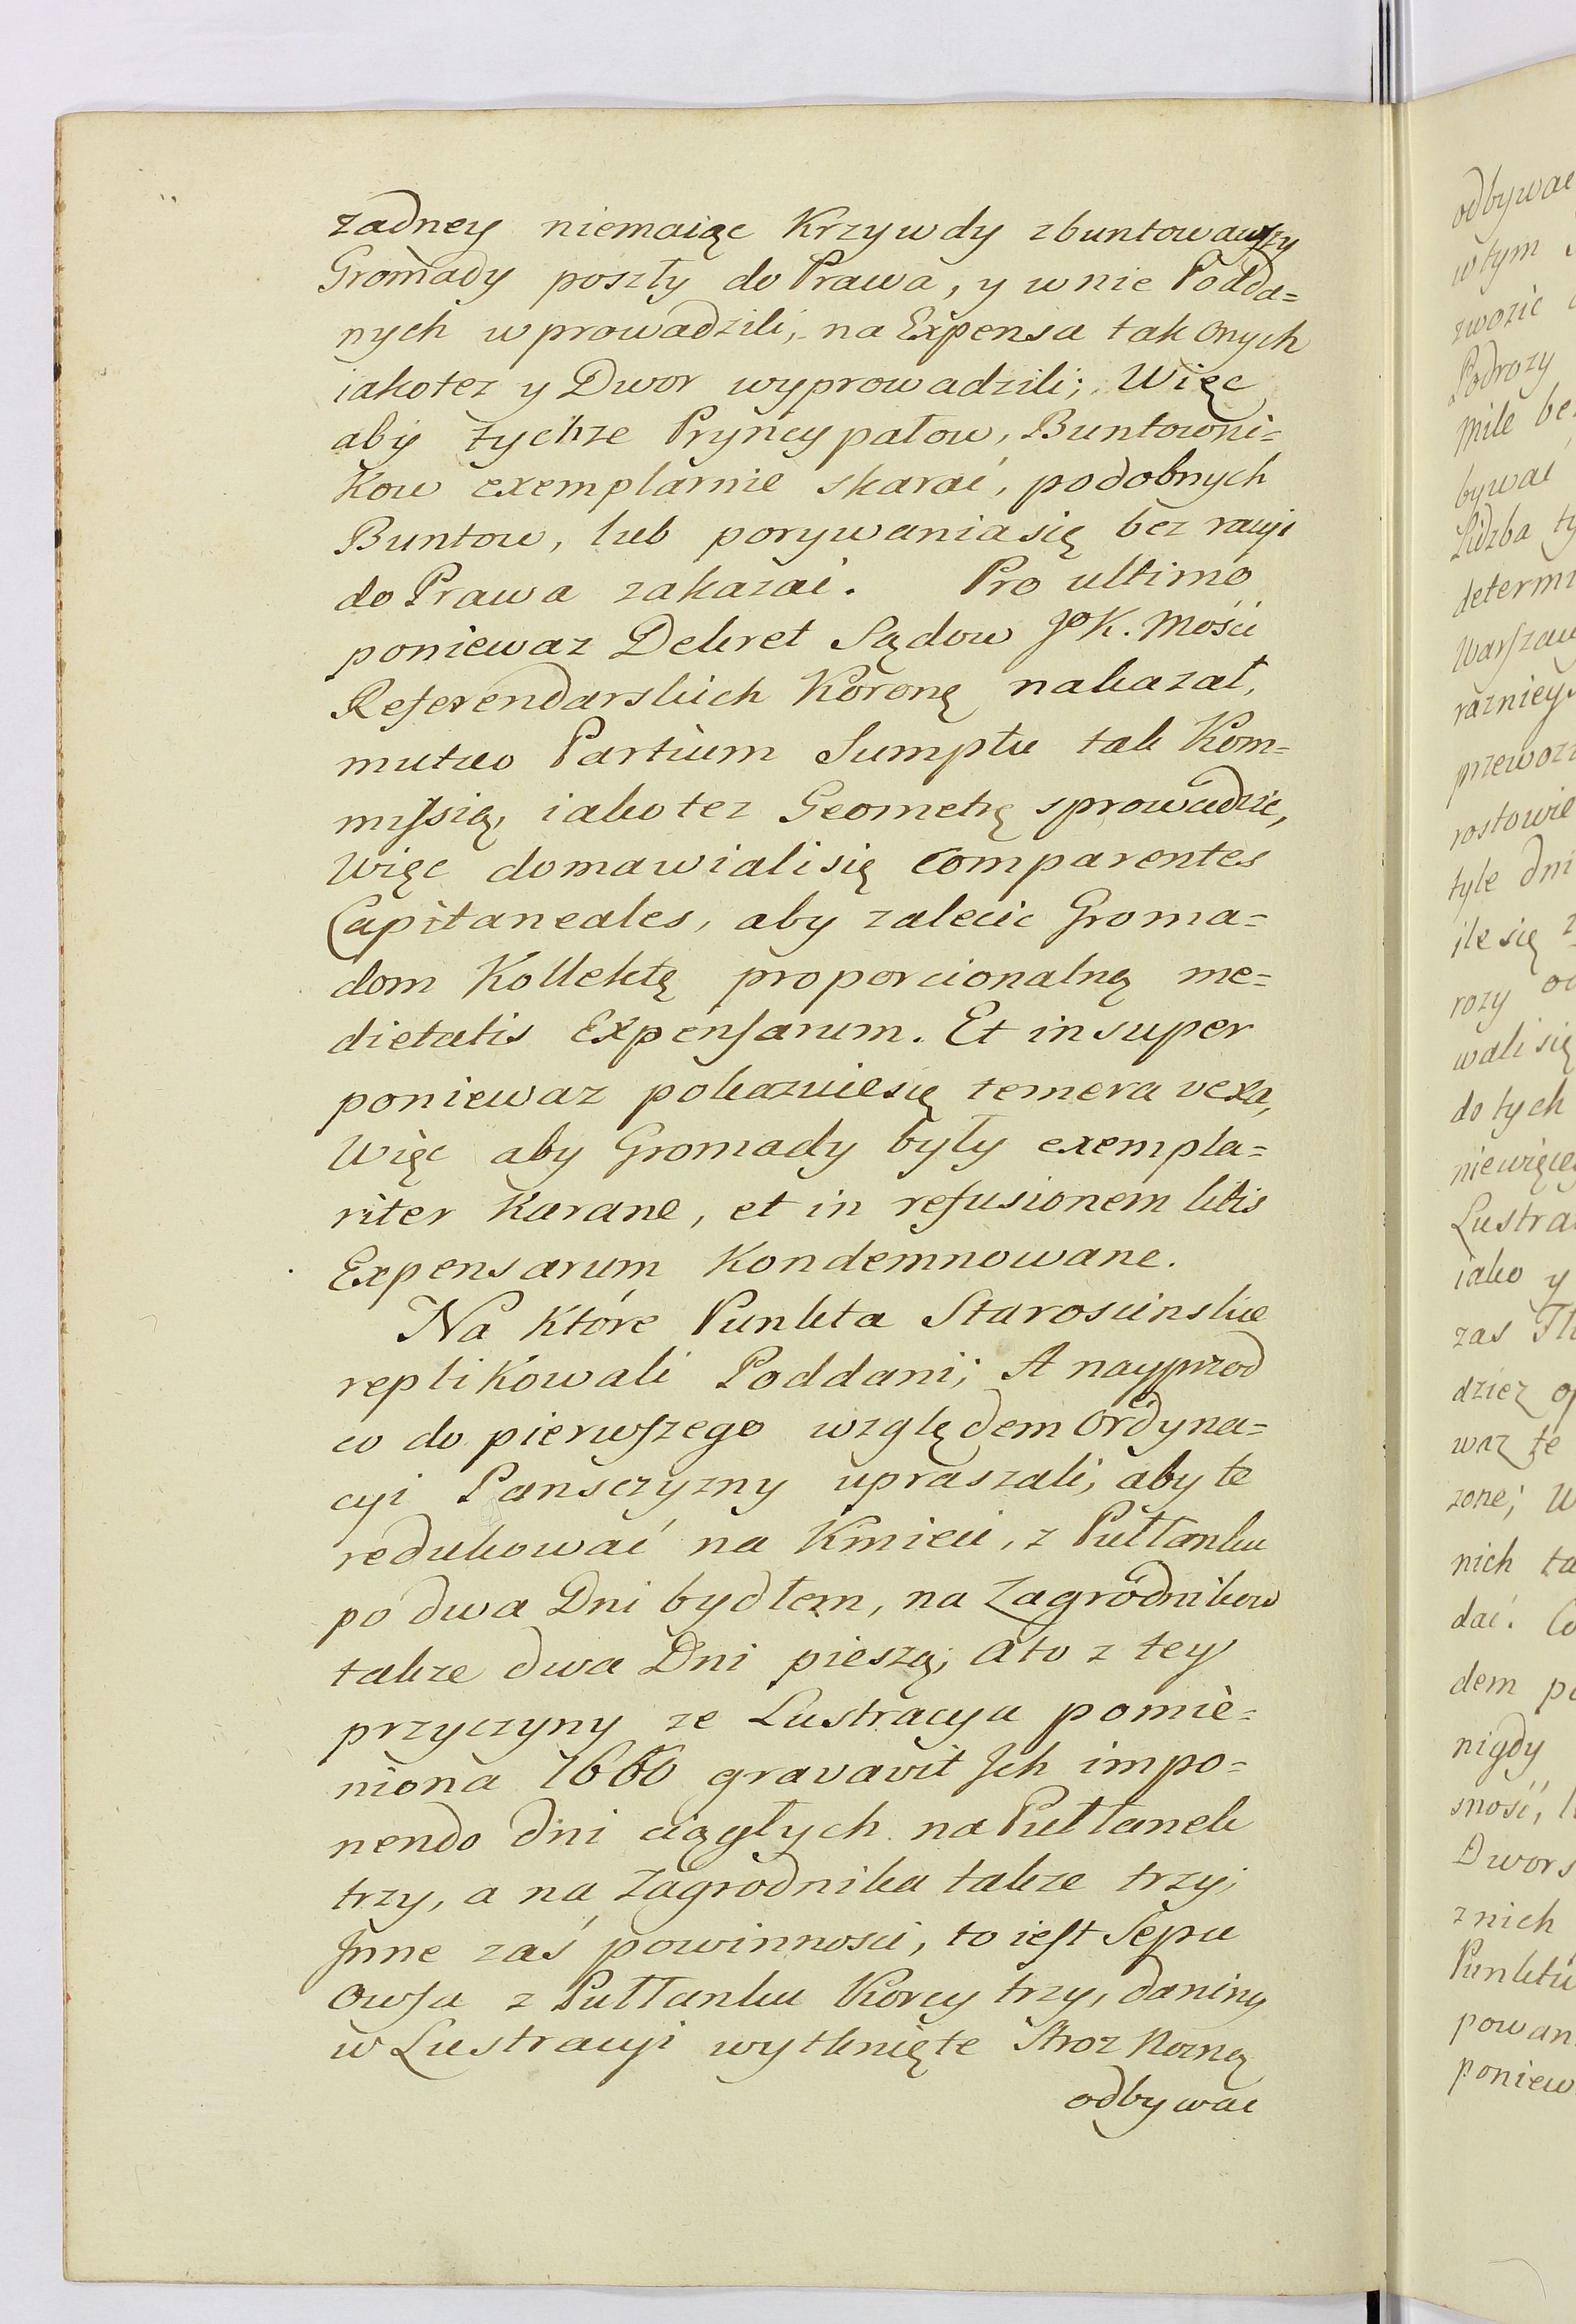 żadney niemaiąc Krzywdy zbuntowawszy
Gromady poszły do Prawa, y w nie Podda=
nych wprowadzili, na Expensa tak onych
iakotez y Dwor wyprowadzili; Więc
aby tychze Pryncypałow, Buntowni=
kow exemplarnie skarać, podobnych
Buntow, lub porywania się bez racyi
do Prawa zakazać. Pro ultimo
poniewaz Dekret Sądow JoK. Mości
Referendarskich Koroną nakazał,
mutuo Partium Sumptu tak Kom=
missią, iako tez Geometrę sprowadzic,
Więc domawiali się Comparentes
Capitaneales, aby zalecic Groma=
dom Kollektę proporcionalną me=
dietatis Expensarum. Et insuper
poniewaz pokazuie się temera vexa,
Więc aby Gromady były exempla=
riter karane, et in refusionem litis
Expensarum Kondemnowane.
Na które Punkta Staroscinskie
replikowali Poddani; A nayprzod
co do pierwszego względem Ordyna=
cyi Pansczyzny upraszali, aby te
redukować na Kmieci, z Pułłanku
po dwa Dni bydłem, na Zagródnikow
takze dwa Dni pieszą; a to z tey
przyczyny ze Lustracya pomie=
niona 1660 gravavit Jch impo=
nendo dni ciągłych na Pułłanek
trzy, a na Zagrodnika takze trzy;
Jnne zaś powinnosci, to iest Sepu
Owsa z Pułłanku Korcy trzy, daniny
w Lustracyi wytknięte Stroz nocną
odbywac
odbywac
w tym
zwozic
Podrozy
mile be
bywać
Lidzba ty
determi
Warszaw
razniey
przewoz
rostowie
tyle dni
ile się
rozy
wali się
do tych
niewięcey
Lustra
iako y
zas
dziez
waz te
zone;
nich ta
dać. Co
dem p
nigdy
sność,
Dwors
z nich
Punktu
powan
poniew